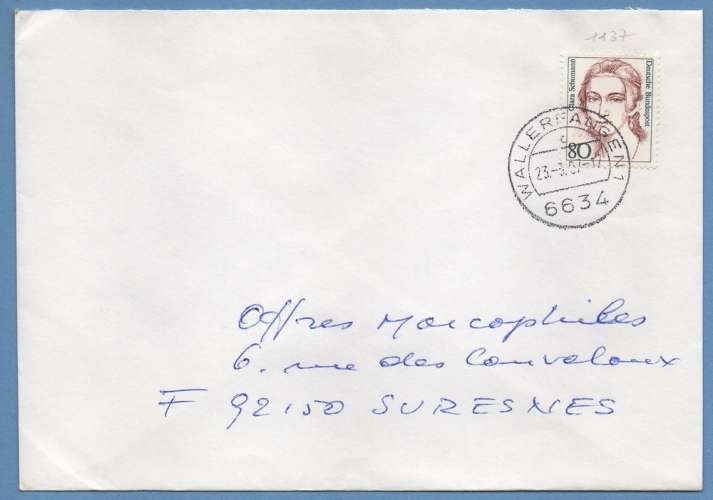 1137
Clara Schumann
Deutsche Bundespost
80
WALLERFANGEN 1
23.-3.87-17
6634
Offres Marcophiles
6. rue des Couvaloux
F 92150 SURESNES